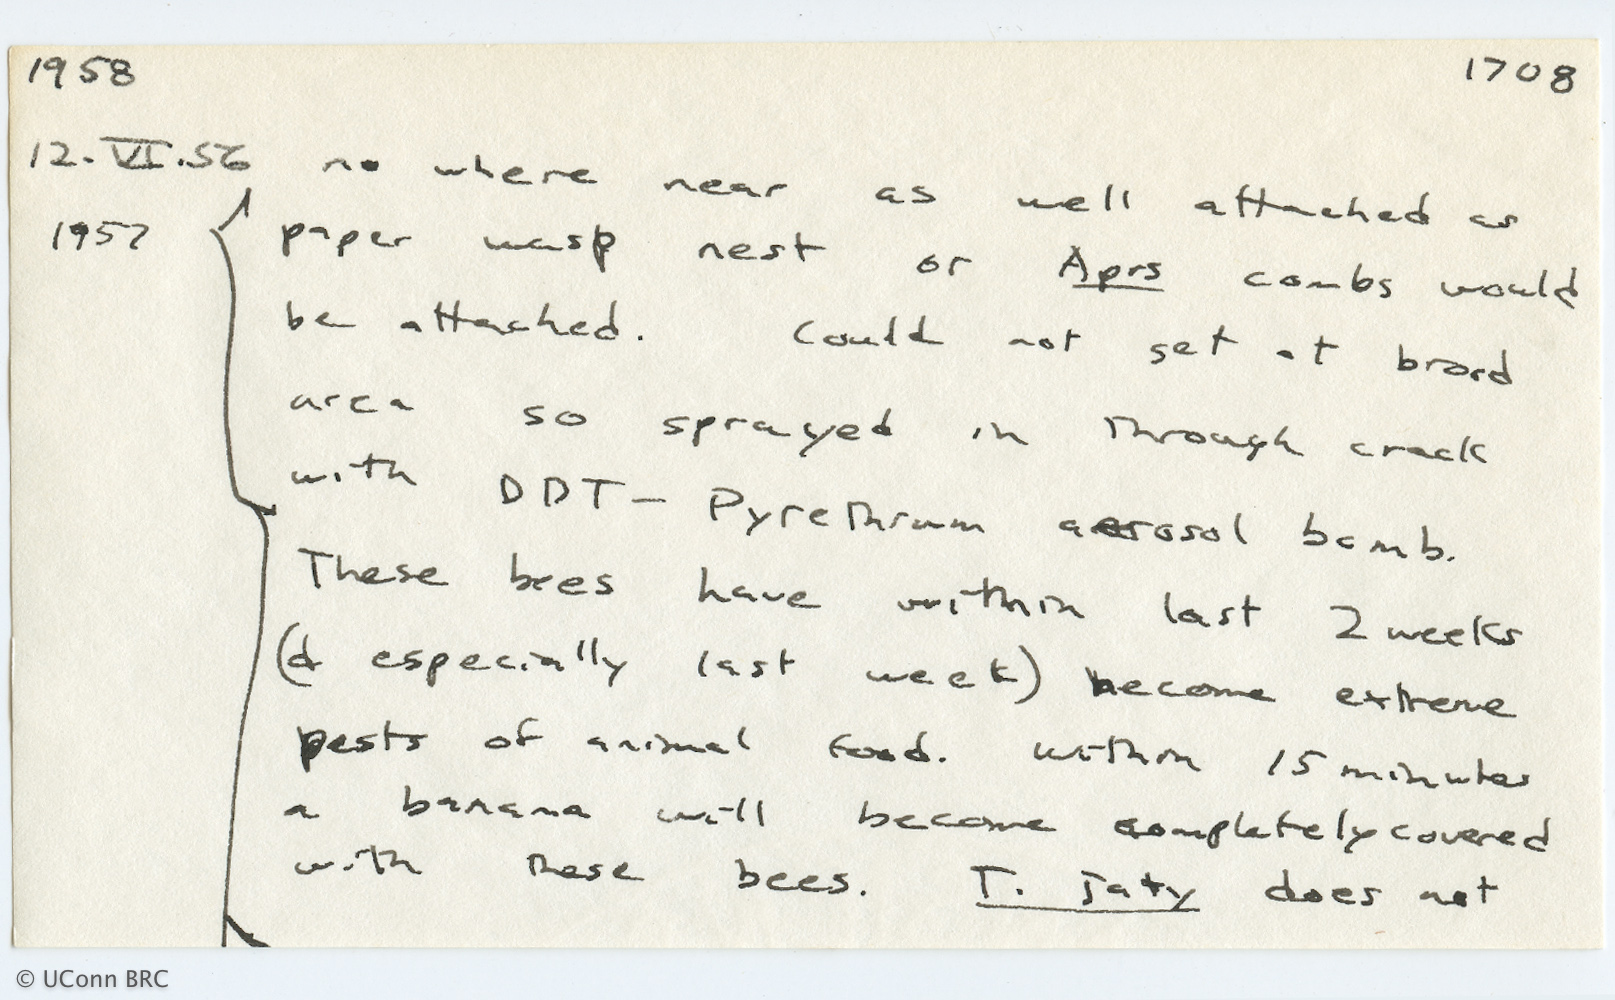 1958 1708
12.VI.56 no where near as well attached as
1957 paper wasp nest or Apis combs would
be attached. Could not get at brood
area so sprayed in through crack
with DDT- Pyrethrum aerosol bomb.
These bees have within last 2 weeks
(& especially last week) become extreme
pests of animal food. Within 15 minutes
a banana will become completely covered
with these bees. T. jaty does not
© UConn BRC